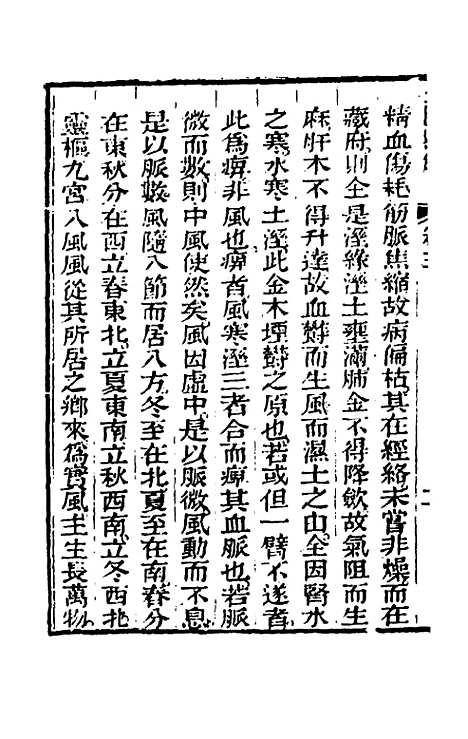 精血傷耗筋脈焦縮故病偏枯其在經絡未嘗非燥而在
藏府則全是溼緣溼土壅滿肺金不得降斂故氣阻而生
痳肝木不得升達故血鬱而生風而濕土之由全因腎水
之寒水寒土溼此金木堙鬱之原也若或但一臂不遂者
此為痹非風也痹者風寒溼三者合而痹其血脈也若脈
微而數則中風使然矣風因虛中是以脈微風動而不息
是以脈數風隨八節而居八方冬至在北夏至在南春分
在東秋分在西立春東北立夏東南立秋西南立冬西北
靈樞九宮八風風從其所居之鄉來為實風主生長萬物